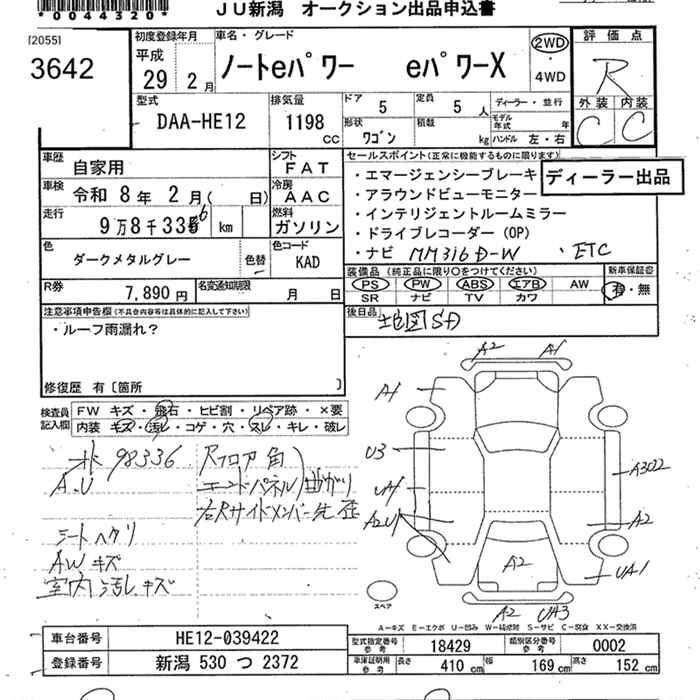 *0044320*
JU新潟 オークション出品申込書
[2055]
3642
初度登録年月
平成
29 2月
車名・グレード
ノートeパワー eパワーX
2WD
・
4WD
評価点
R
外装 内装
C C
型式
DAA-HE12
排気量
1198
CC
ドア 5
定員 5人
形状
ワゴン
積載
kg
ディーラー・並行
モデル年式 年
ハンドル 左・右
車歴
自家用
シフト
FAT
車検
令和 8年 2月( 日)
冷房
AAC
走行
9万8千336 km
燃料
ガソリン
色
ダークメタルグレー
色替
カラーコード
KAD
R券
7,890円
名変通知期限
月 日
セールスポイント(正常に機能するものに限ります)
・エマージェンシーブレーキ
ディーラー出品
・アラウンドビューモニター
・インテリジェントルームミラー
・ドライブレコーダー(OP)
・ナビ MM316D-W ・ETC
装備品(純正品に限り○をつけてください)
PS PW ABS エアB AW
SR ナビ TV カワ
新車保証書
有・無
後日品
地図SD
注意事項申告欄(不具合内容等は具体的に記入して下さい)
・ルーフ雨漏れ?
修復歴 有〔箇所 〕
検査員
記入欄
FW キズ・飛石・ヒビ割・リペア跡・×要
内装 キズ・汚レ・コゲ・穴・スレ・キレ・破レ
98336
A.U
シートヘタリ
AWキズ
室内汚レキズ
Rフロア角
エンドパネル 曲がり
右Rサイドメンバー先歪
A2 A1
A1
U3
UA1
A2U1
A3022
A2
A2
UA1
A2 UA3
スペア
A-キズ E-エクボ U-凹み W-補修跡 S-サビ C-腐食 XX-交換済
車台番号 HE12-039422
登録番号 新潟 530 つ 2372
型式指定番号
参考
18429
類別区分番号
参考
0002
車庫証明用
参考
長さ 410 cm 幅 169 cm 高さ 152 cm